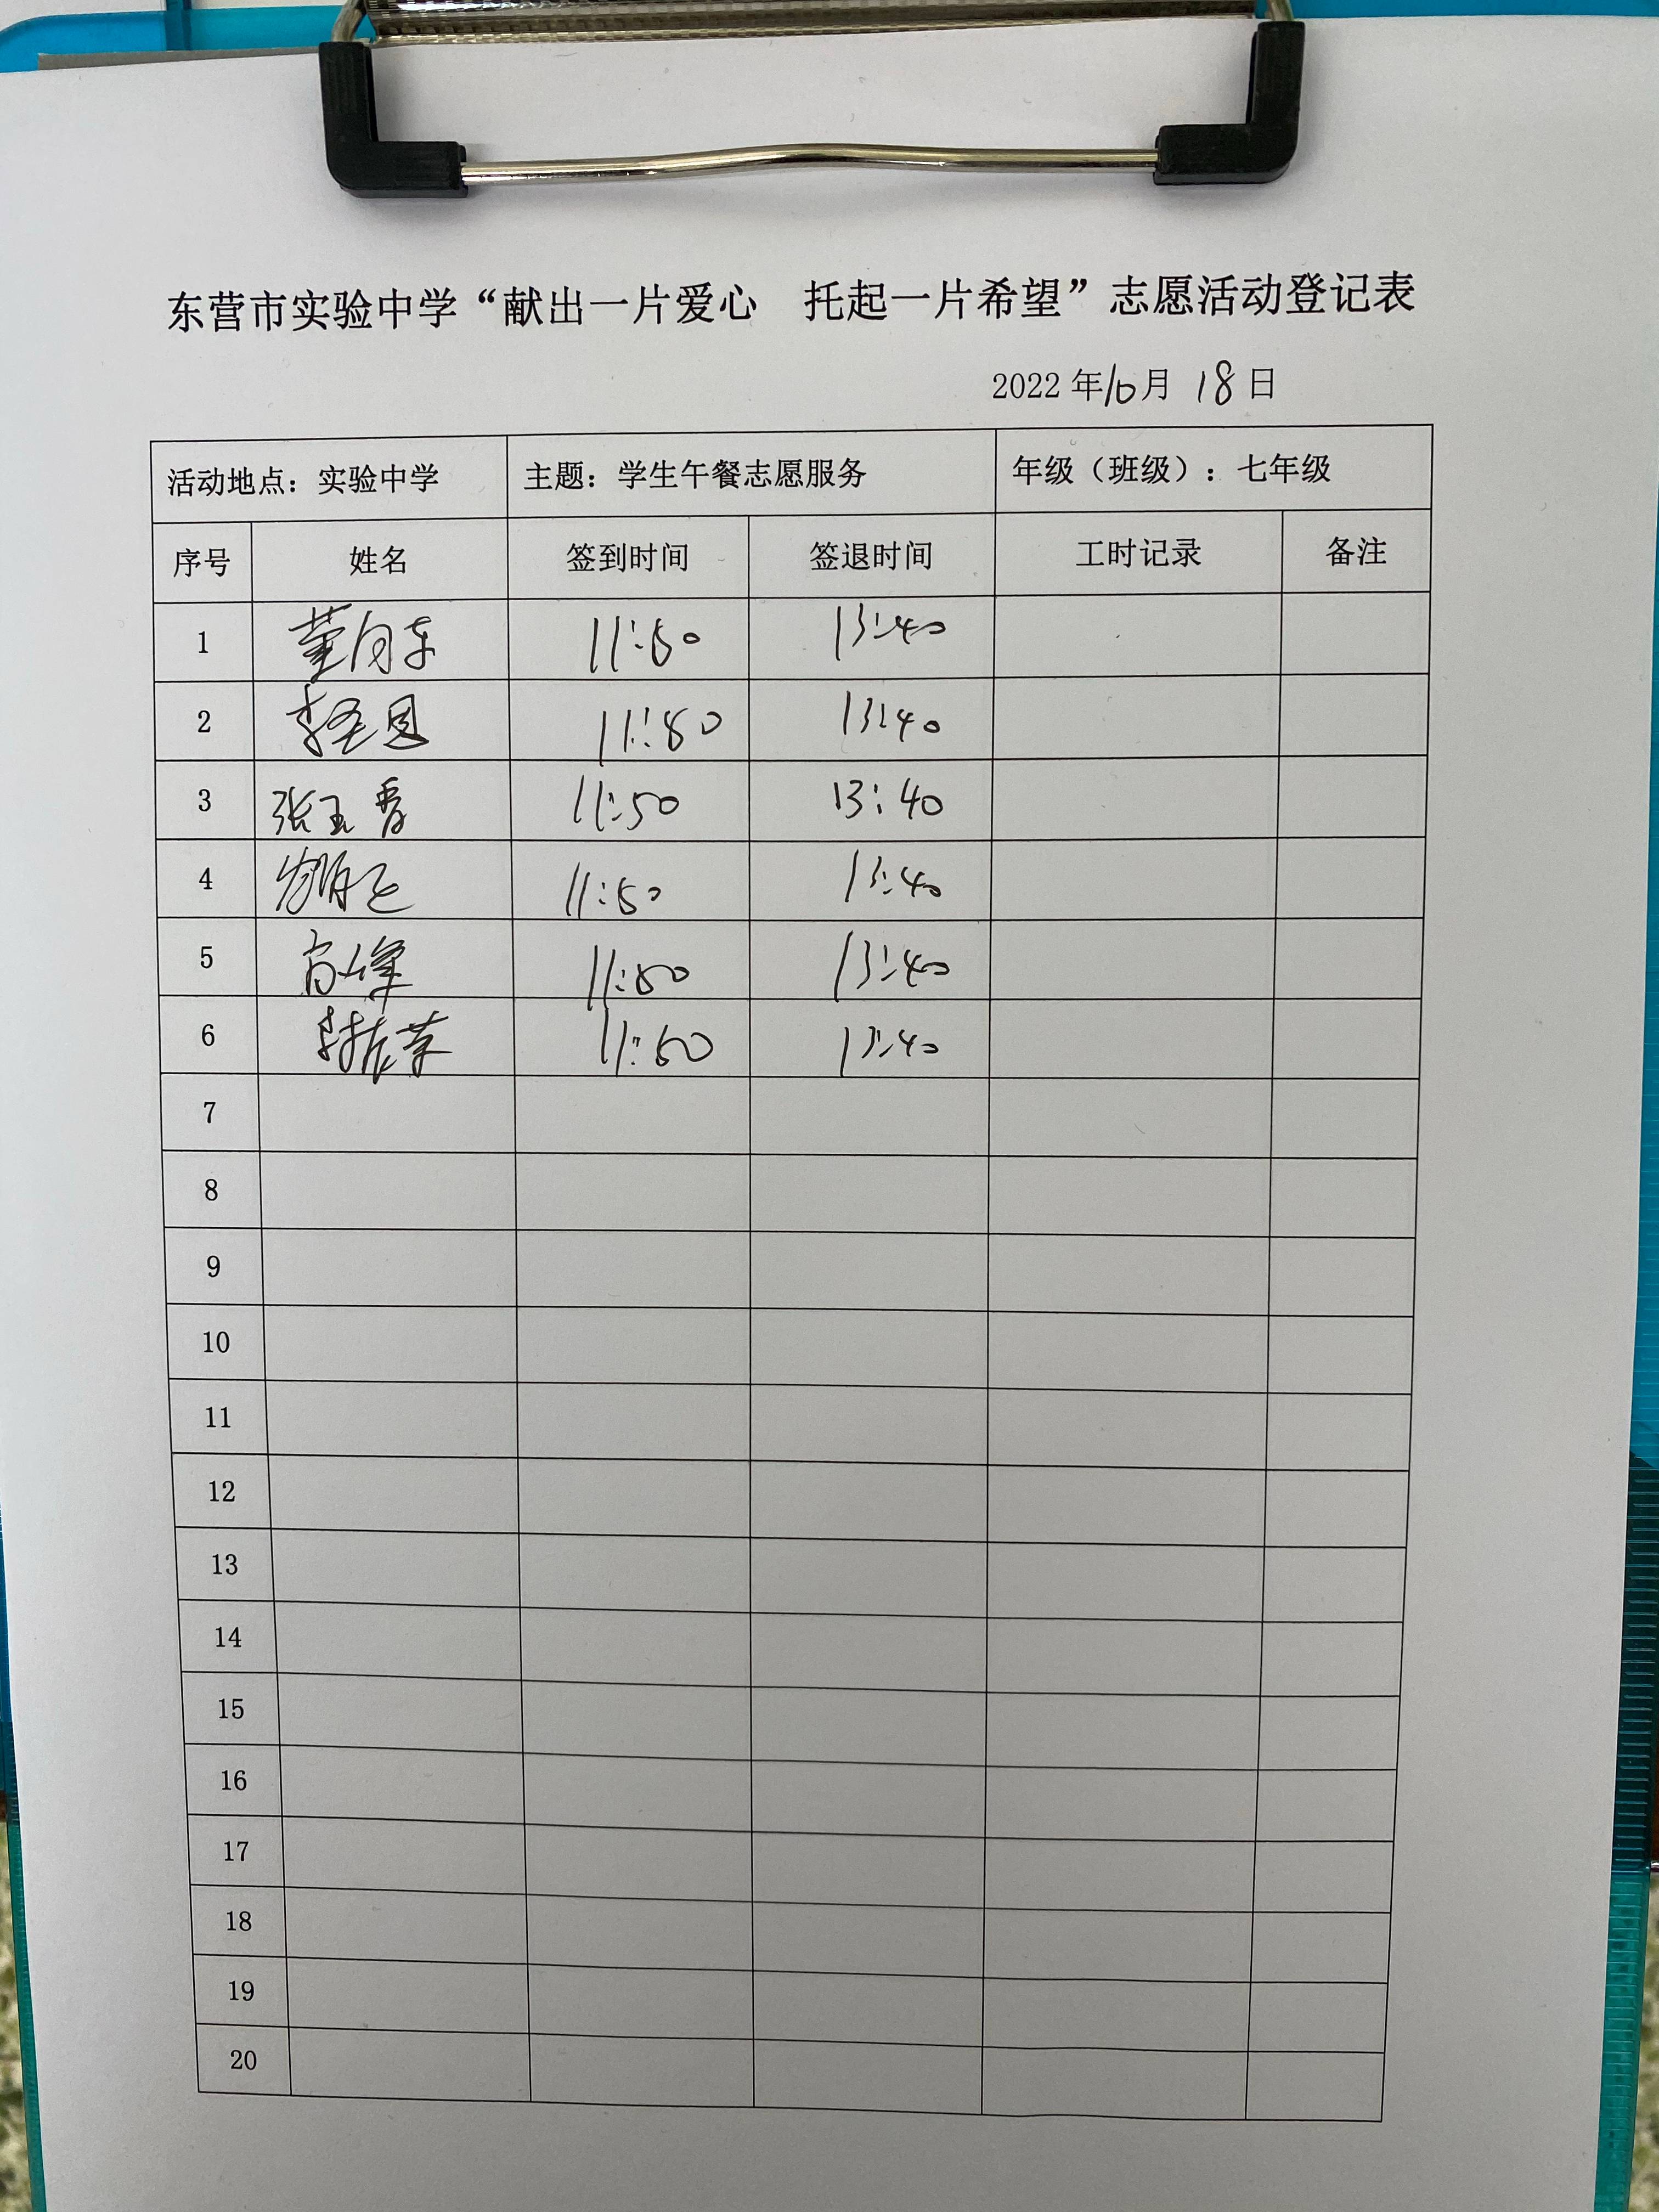 东营市实验中学“献出一片爱心 托起一片希望”志愿活动登记表
2022年10月18日
活动地点：实验中学 主题：学生午餐志愿服务 年级（班级）：七年级
序号 姓名 签到时间 签退时间 工时记录 备注
1 11:50 13:40
2 11:50 13:40
3 张玉香 11:50 13:40
4 11:50 13:40
5 11:50 13:40
6 11:50 13:40
7
8
9
10
11
12
13
14
15
16
17
18
19
20